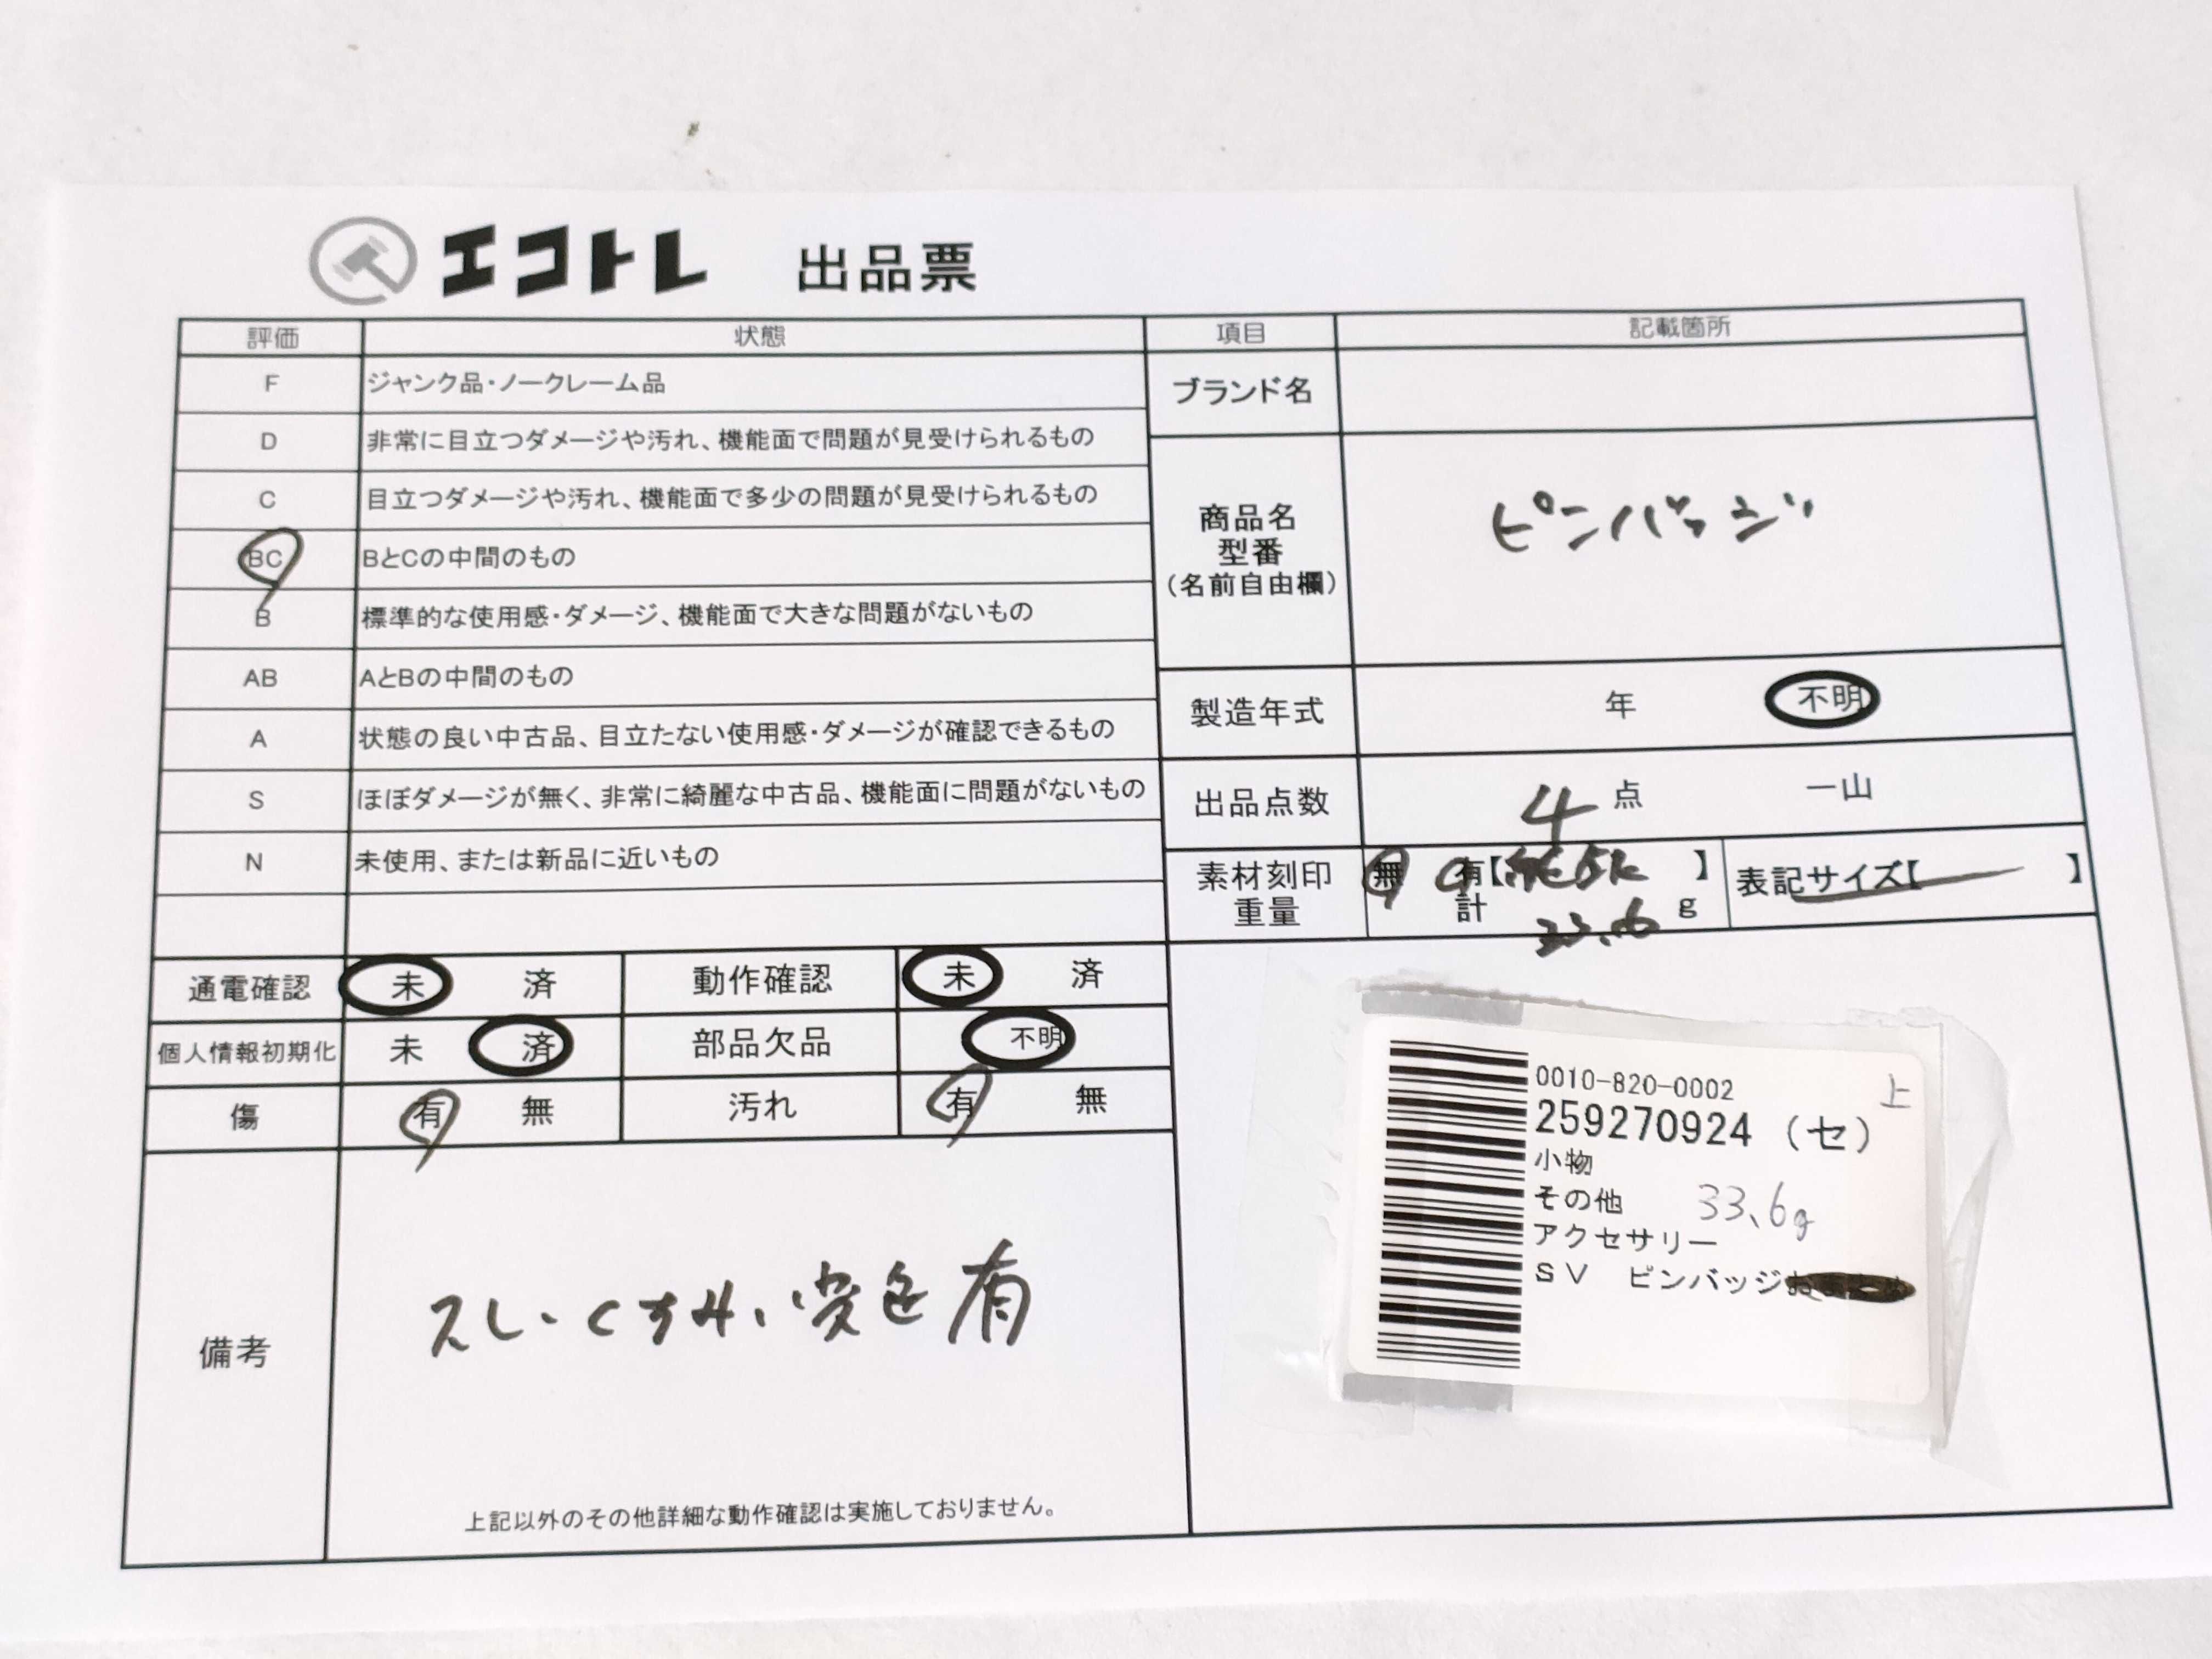 エコトレ 出品票
評価 状態 項目 記載箇所
F ジャンク品・ノークレーム品
D 非常に目立つダメージや汚れ、機能面で問題が見受けられるもの
C 目立つダメージや汚れ、機能面で多少の問題が見受けられるもの
BC BとCの中間のもの
B 標準的な使用感・ダメージ、機能面で大きな問題がないもの
AB AとBの中間のもの
A 状態の良い中古品、目立たない使用感・ダメージが確認できるもの
S ほぼダメージが無く、非常に綺麗な中古品、機能面に問題がないもの
N 未使用、または新品に近いもの
ブランド名
商品名
型番
(名前自由欄)
ピンバッジ
製造年式 年 不明
出品点数 4 点 一山
素材刻印 無 有【 】
重量 計 33.6 g
表記サイズ【 】
通電確認 未 済 動作確認 未 済
個人情報初期化 未 済 部品欠品 不明
傷 有 無 汚れ 有 無
備考
スレ・くすみ、変色有
上記以外のその他詳細な動作確認は実施しておりません。
0010-820-0002 上
259270924 (セ)
小物
その他 33.6g
アクセサリー
SV ピンバッジ